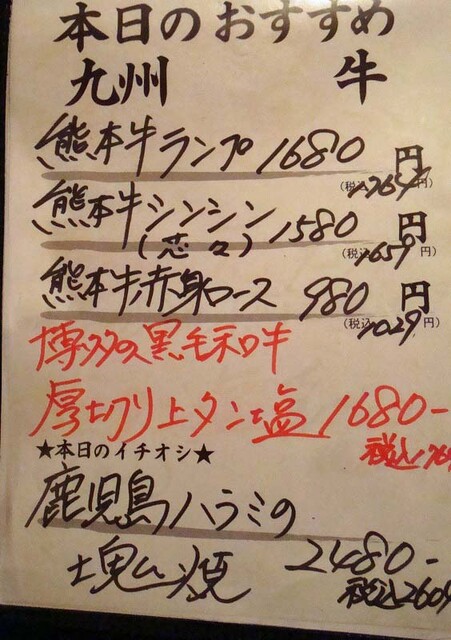 本日のおすすめ
九州 牛
熊本牛ランプ 1680円
(税込1764円)
熊本牛シンシン 1580円
(芯々) (税込1659円)
熊本牛赤身ロース 980円
(税込1029円)
博多の黒毛和牛
厚切り上タン塩 1680-
税込176
★本日のイチオシ★
鹿児島ハラミの
塊焼 2480-
税込2604